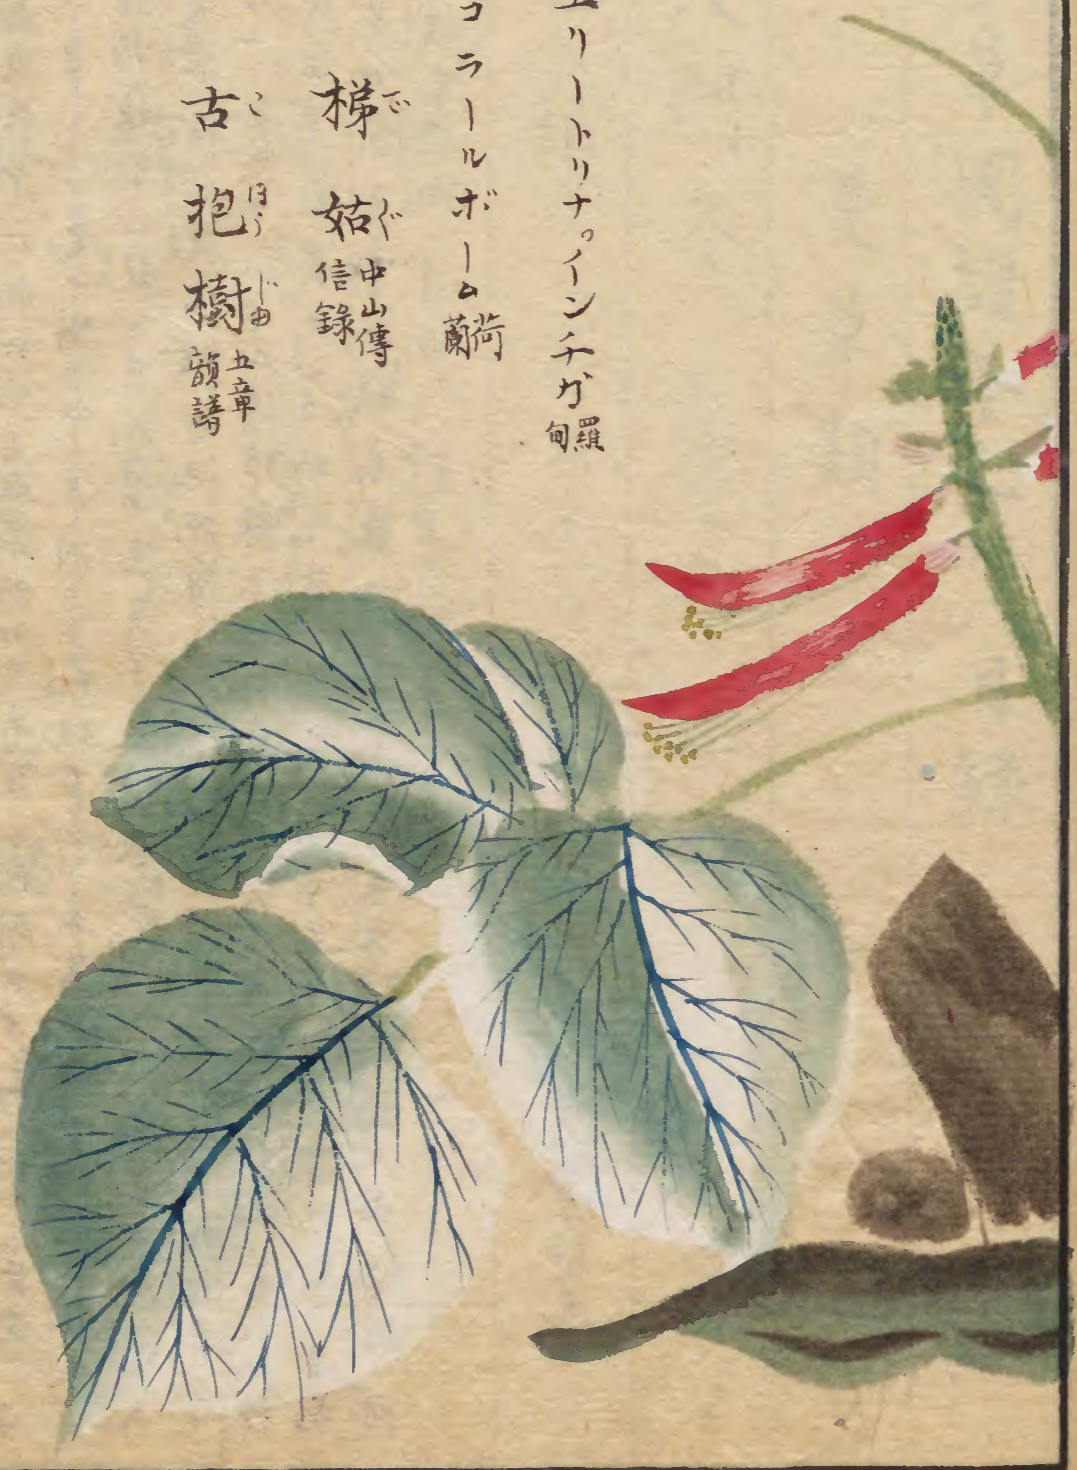 エリートリナ。インチガ 羅甸
コラールボーム 荷蘭
梯姑 でぐ 中山傳信録
古抱樹 こほうじゅ 五音韻譜